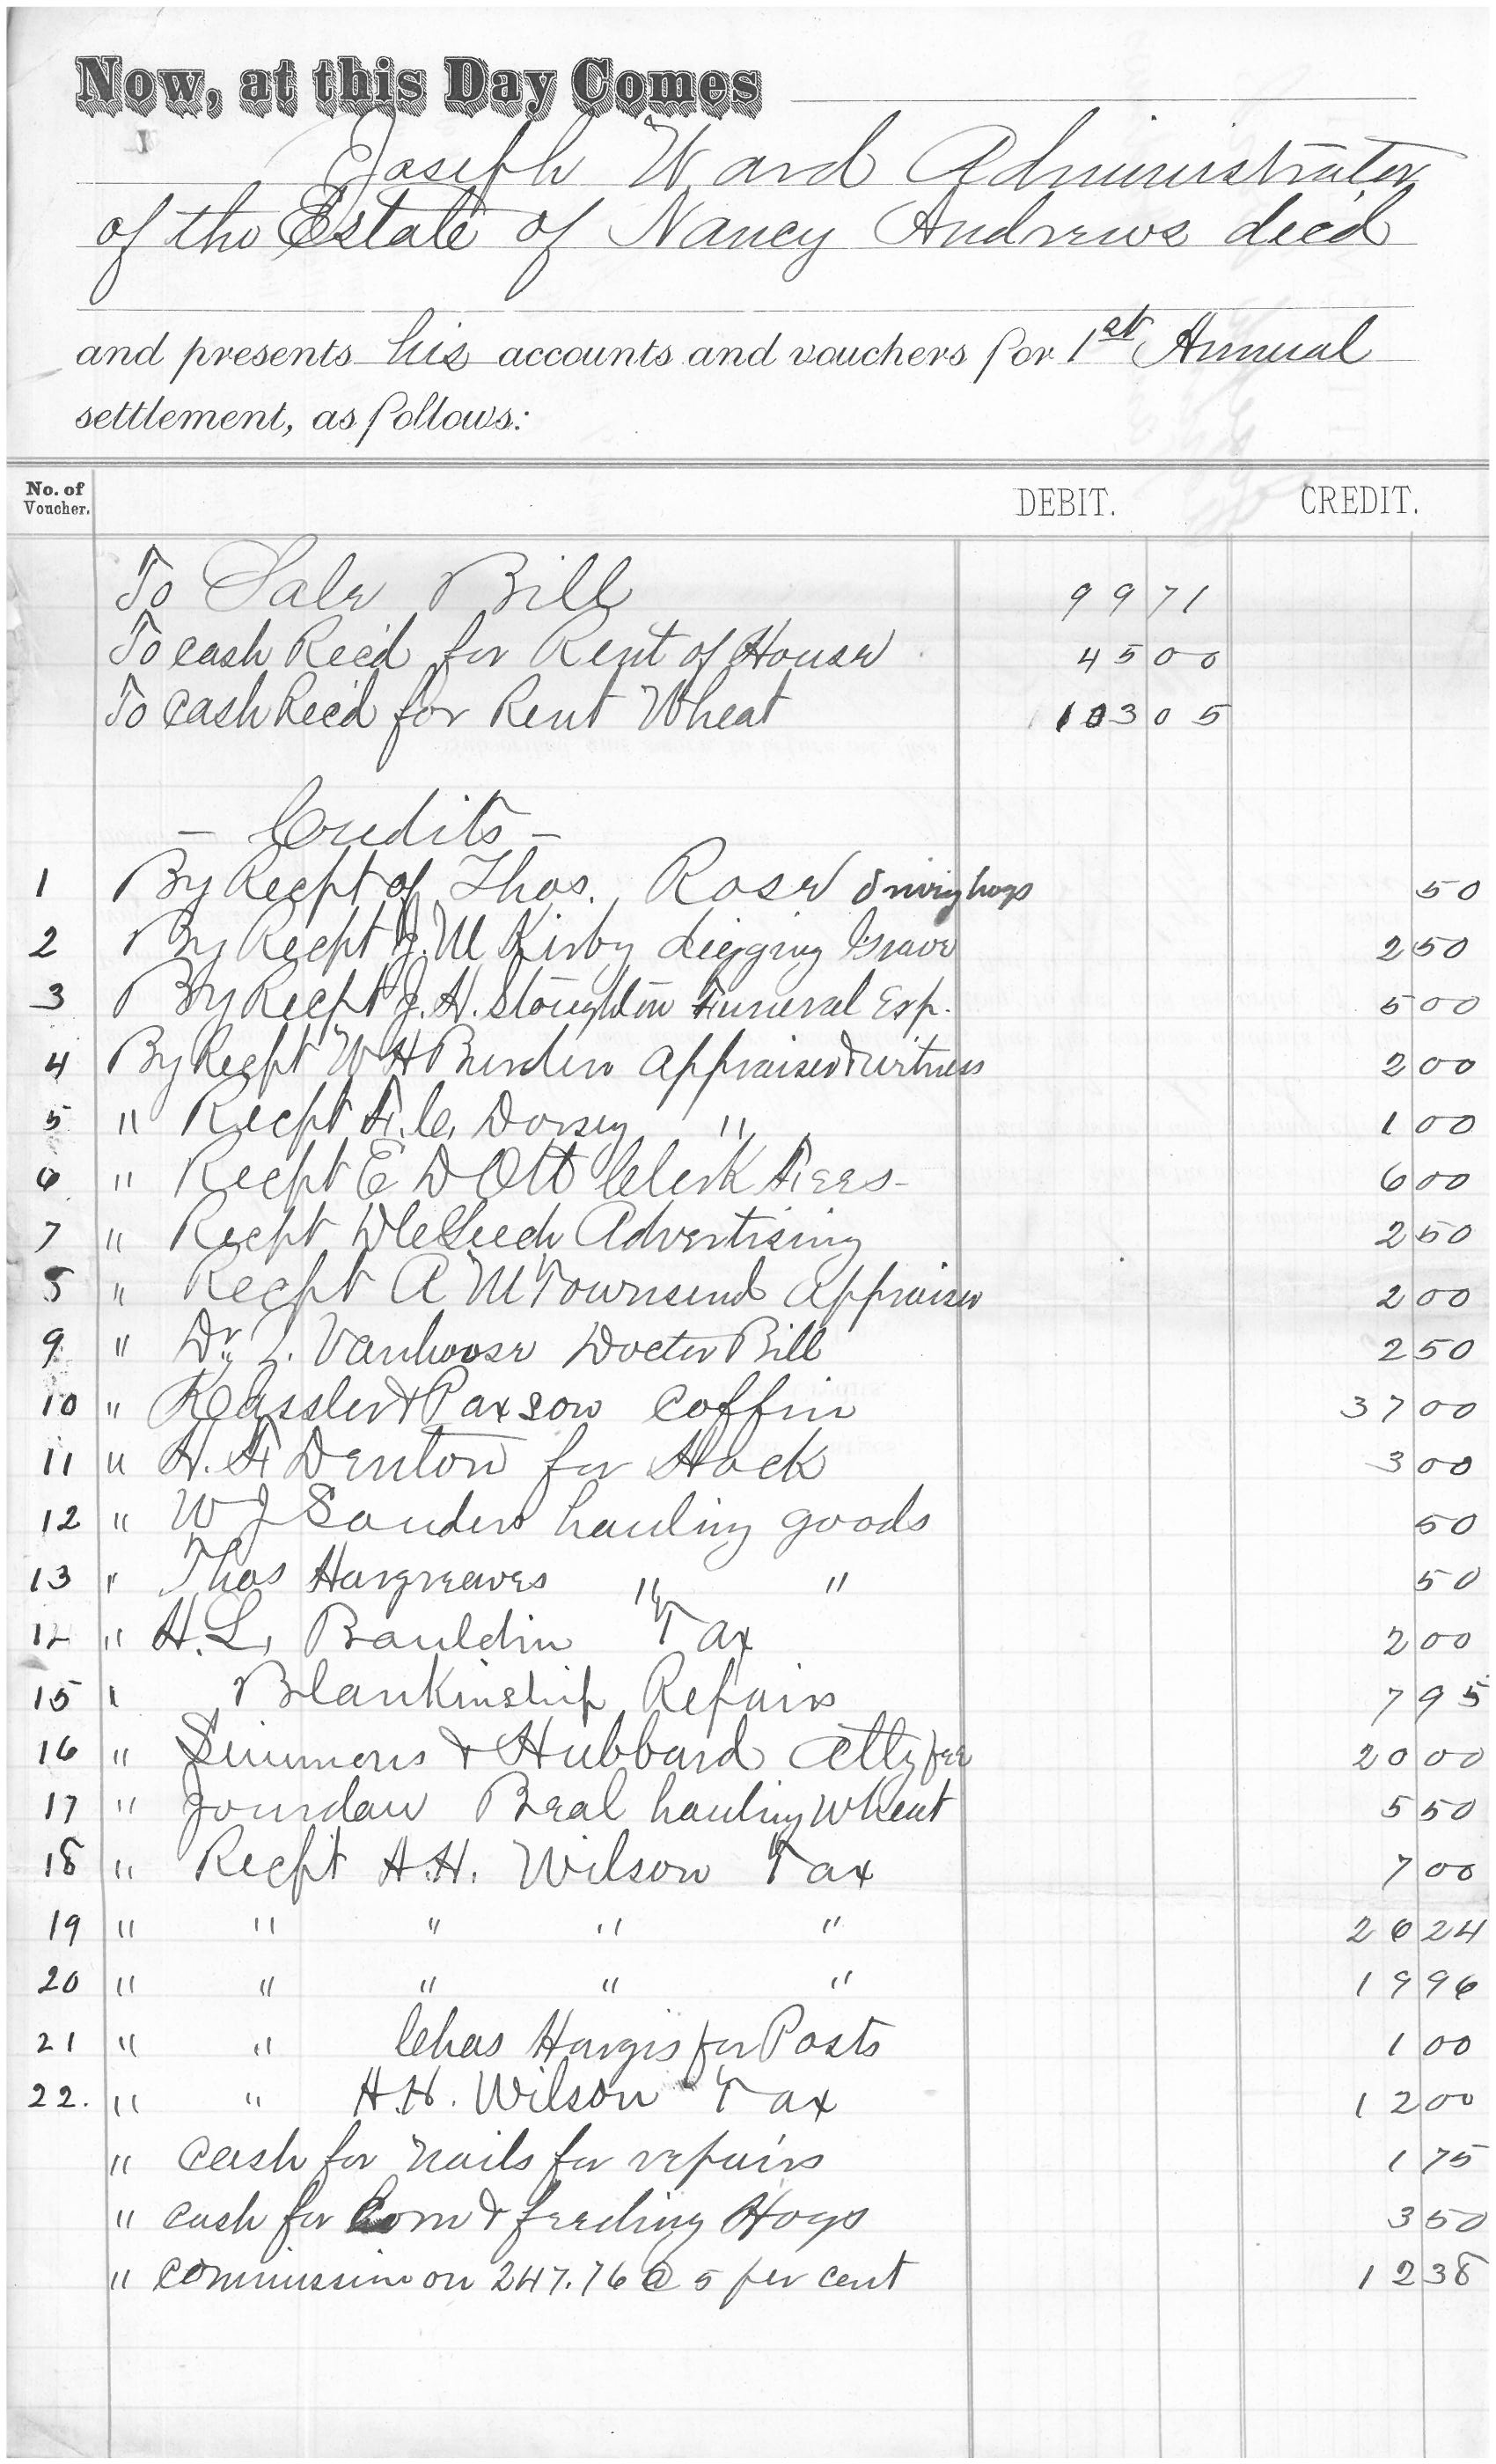 Now, at this Day Comes
Joseph Ward Administrator
of the Estate of Nancy Andrews dec'd
and presents his accounts and vouchers for 1st Annual
settlement, as follows:
No. of Voucher. DEBIT. CREDIT.
To Sale Bill 99 71
To cash Rec'd for Rent of House 45 00
To cash Rec'd for Rent Wheat 103 05
- Credits -
1 By Recpt of Thos. Rose driving hogs 50
2 By Recpt J. M Kirby digging Grave 2 50
3 By Recpt J. H. Stoughton Funeral Exp. 5 00
4 By Recpt W H Burden appraiser & witness 2 00
5 " Recpt F. C. Dorsey " 1 00
6 " Recpt E D Ott Clerk Fees - 6 00
7 " Recpt Advertising 2 50
8 " Recpt A M Townsend appraiser 2 00
9 " Dr. Vanhoose Docter Bill 2 50
10 " Kassler & Paxson Coffin 37 00
11 " H. F Denton for Hack 3 00
12 " W J Sanders hauling goods 50
13 " Thos Hargreaves " " 50
14 " H. L. Bauldin Tax 2 00
15 " Blankinship Repairs 7 95
16 " Simmons & Hubbard Atty fee 20 00
17 " Jourdan Beal hauling Wheat 5 50
18 " Recpt H. H. Wilson Tax 7 00
19 " " " " " 26 24
20 " " " " " 19 96
21 " " Chas Hargis for Posts 1 00
22. " " H. H. Wilson Tax 12 00
" cash for nails for repairs 1 75
" cash for Corn & feeding Hogs 3 50
" commission on 247.76 @ 5 per cent 12 38